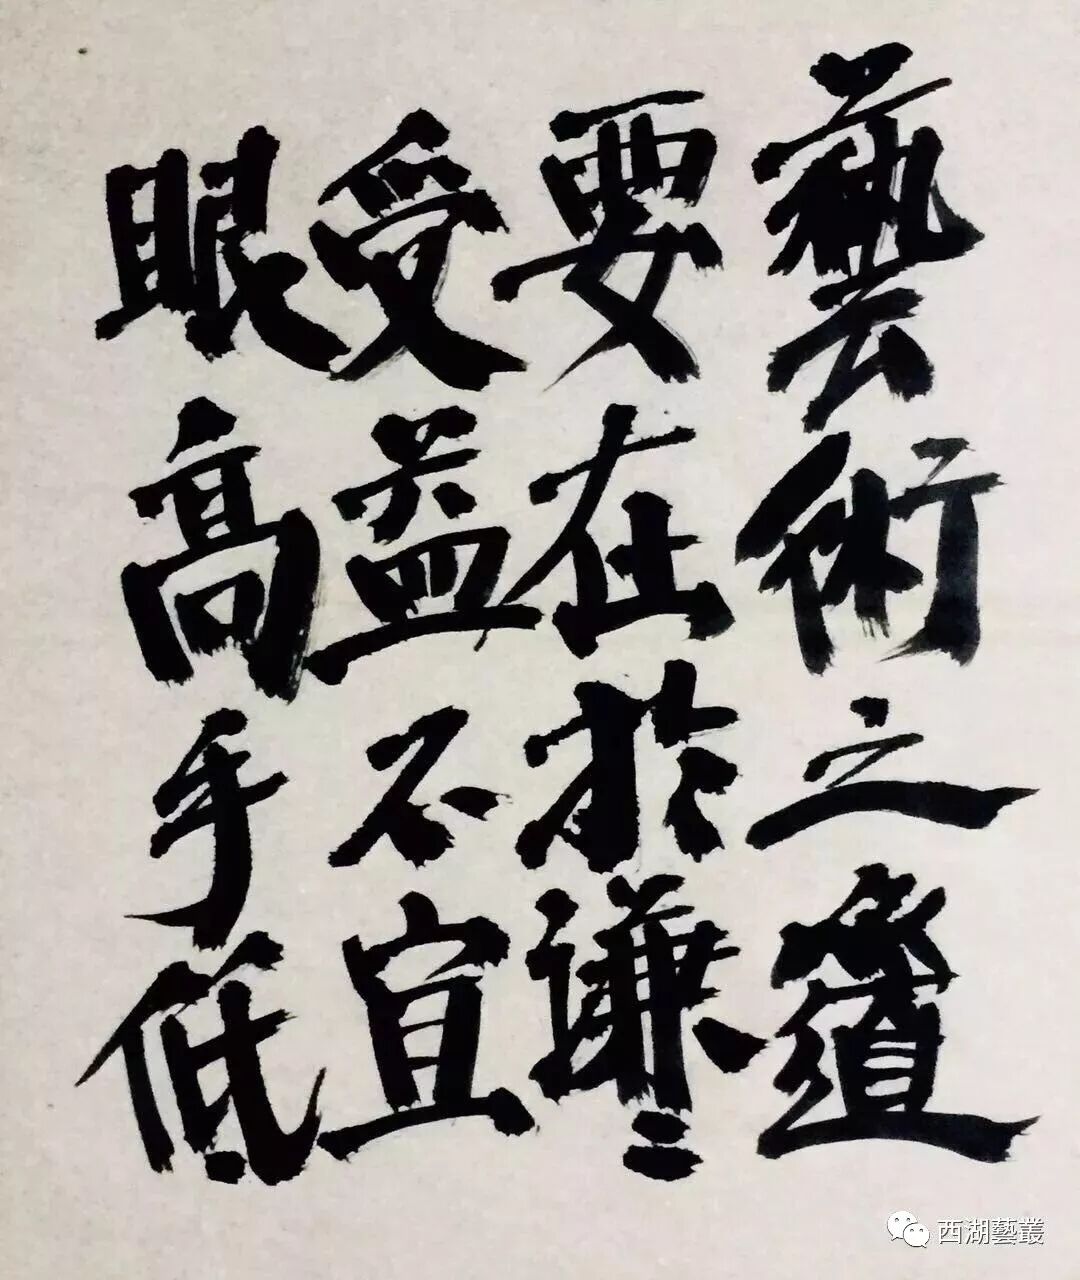 藝術之道
要在於謙〻
受益不宜
眼高手低
西湖藝叢